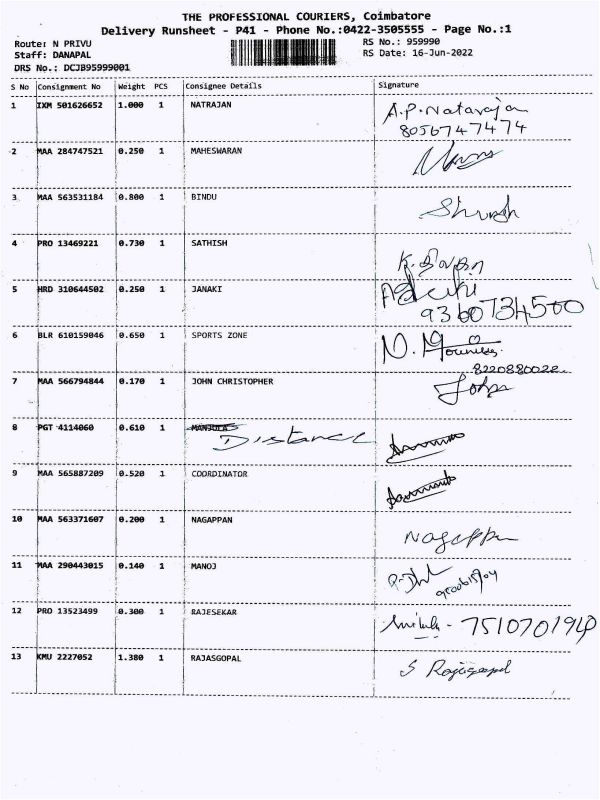 THE PROFESSIONAL COURIERS, Coimbatore
Delivery Runsheet - P41 - Phone No.:0422-3505555 - Page No.:1
Route: N PRIVU RS No.: 959990
Staff: DANAPAL RS Date: 16-Jun-2022
DRS No.: DCJB95999001
S No Consignment No Weight PCS Consignee Details Signature
1 IXM 501626652 1.000 1 NATRAJAN A.P.Natarajan
8056747474
2 MAA 284747521 0.250 1 MAHESWARAN
3 MAA 563531184 0.800 1 BINDU
4 PRO 13469221 0.730 1 SATHISH
5 HRD 310644502 0.250 1 JANAKI
9360734500
6 BLR 610159046 0.650 1 SPORTS ZONE
8220880022
7 MAA 566794844 0.170 1 JOHN CHRISTOPHER John
8 PGT 4114060 0.610 1 MANJULA
Distance
9 MAA 565887209 0.520 1 COORDINATOR
10 MAA 563371607 0.200 1 NAGAPPAN Nagappan
11 MAA 290443015 0.140 1 MANOJ
12 PRO 13523499 0.300 1 RAJESEKAR
13 KMU 2227052 1.380 1 RAJASGOPAL S Rajagopal